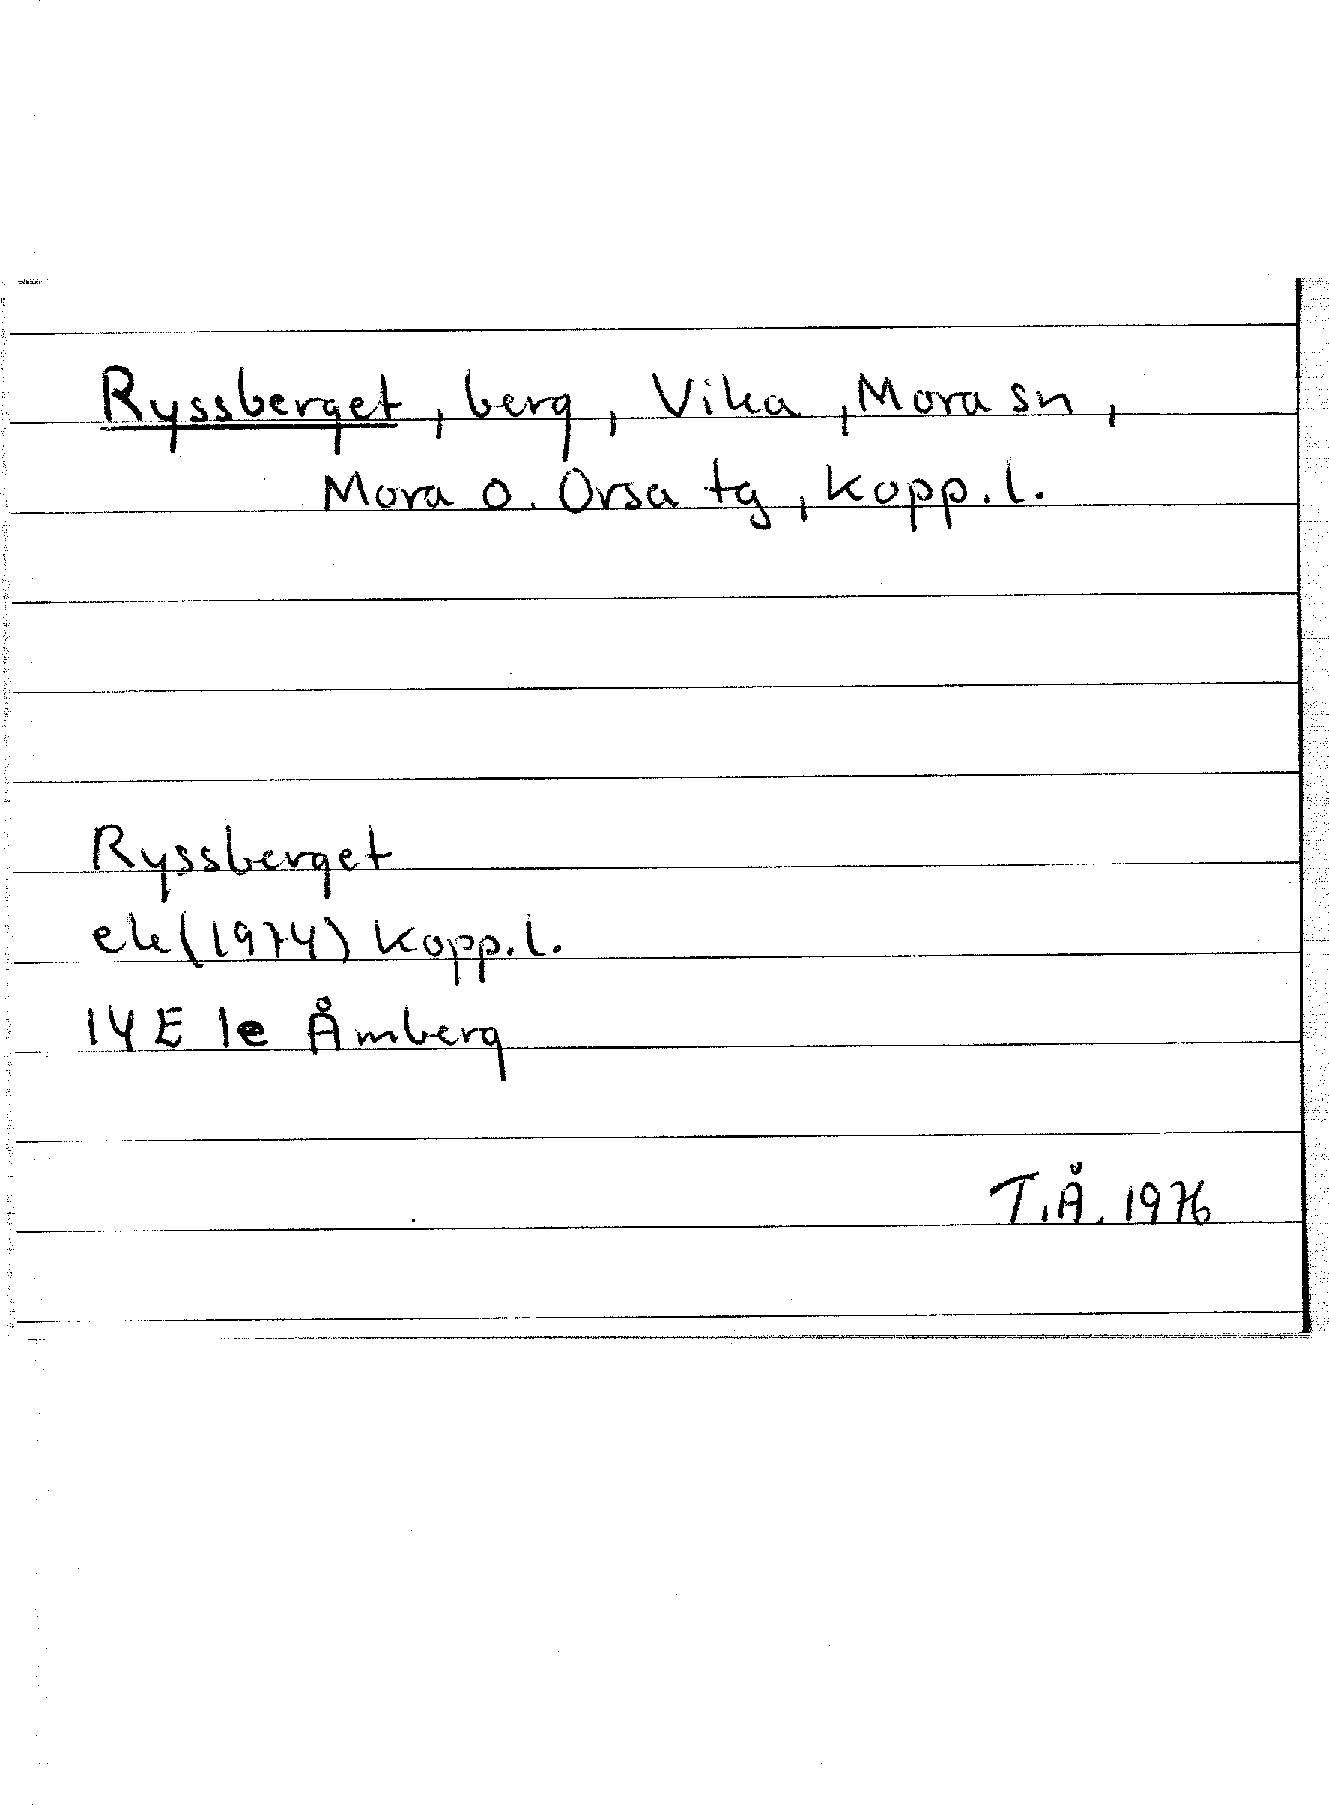 Ryssberget, berg, Vika, Mora sn,
Mora o. Orsa tg, Kopp. l.
Ryssberget
ek (1974) Kopp. l.
14E 1e Åmberg
T.Å. 1976